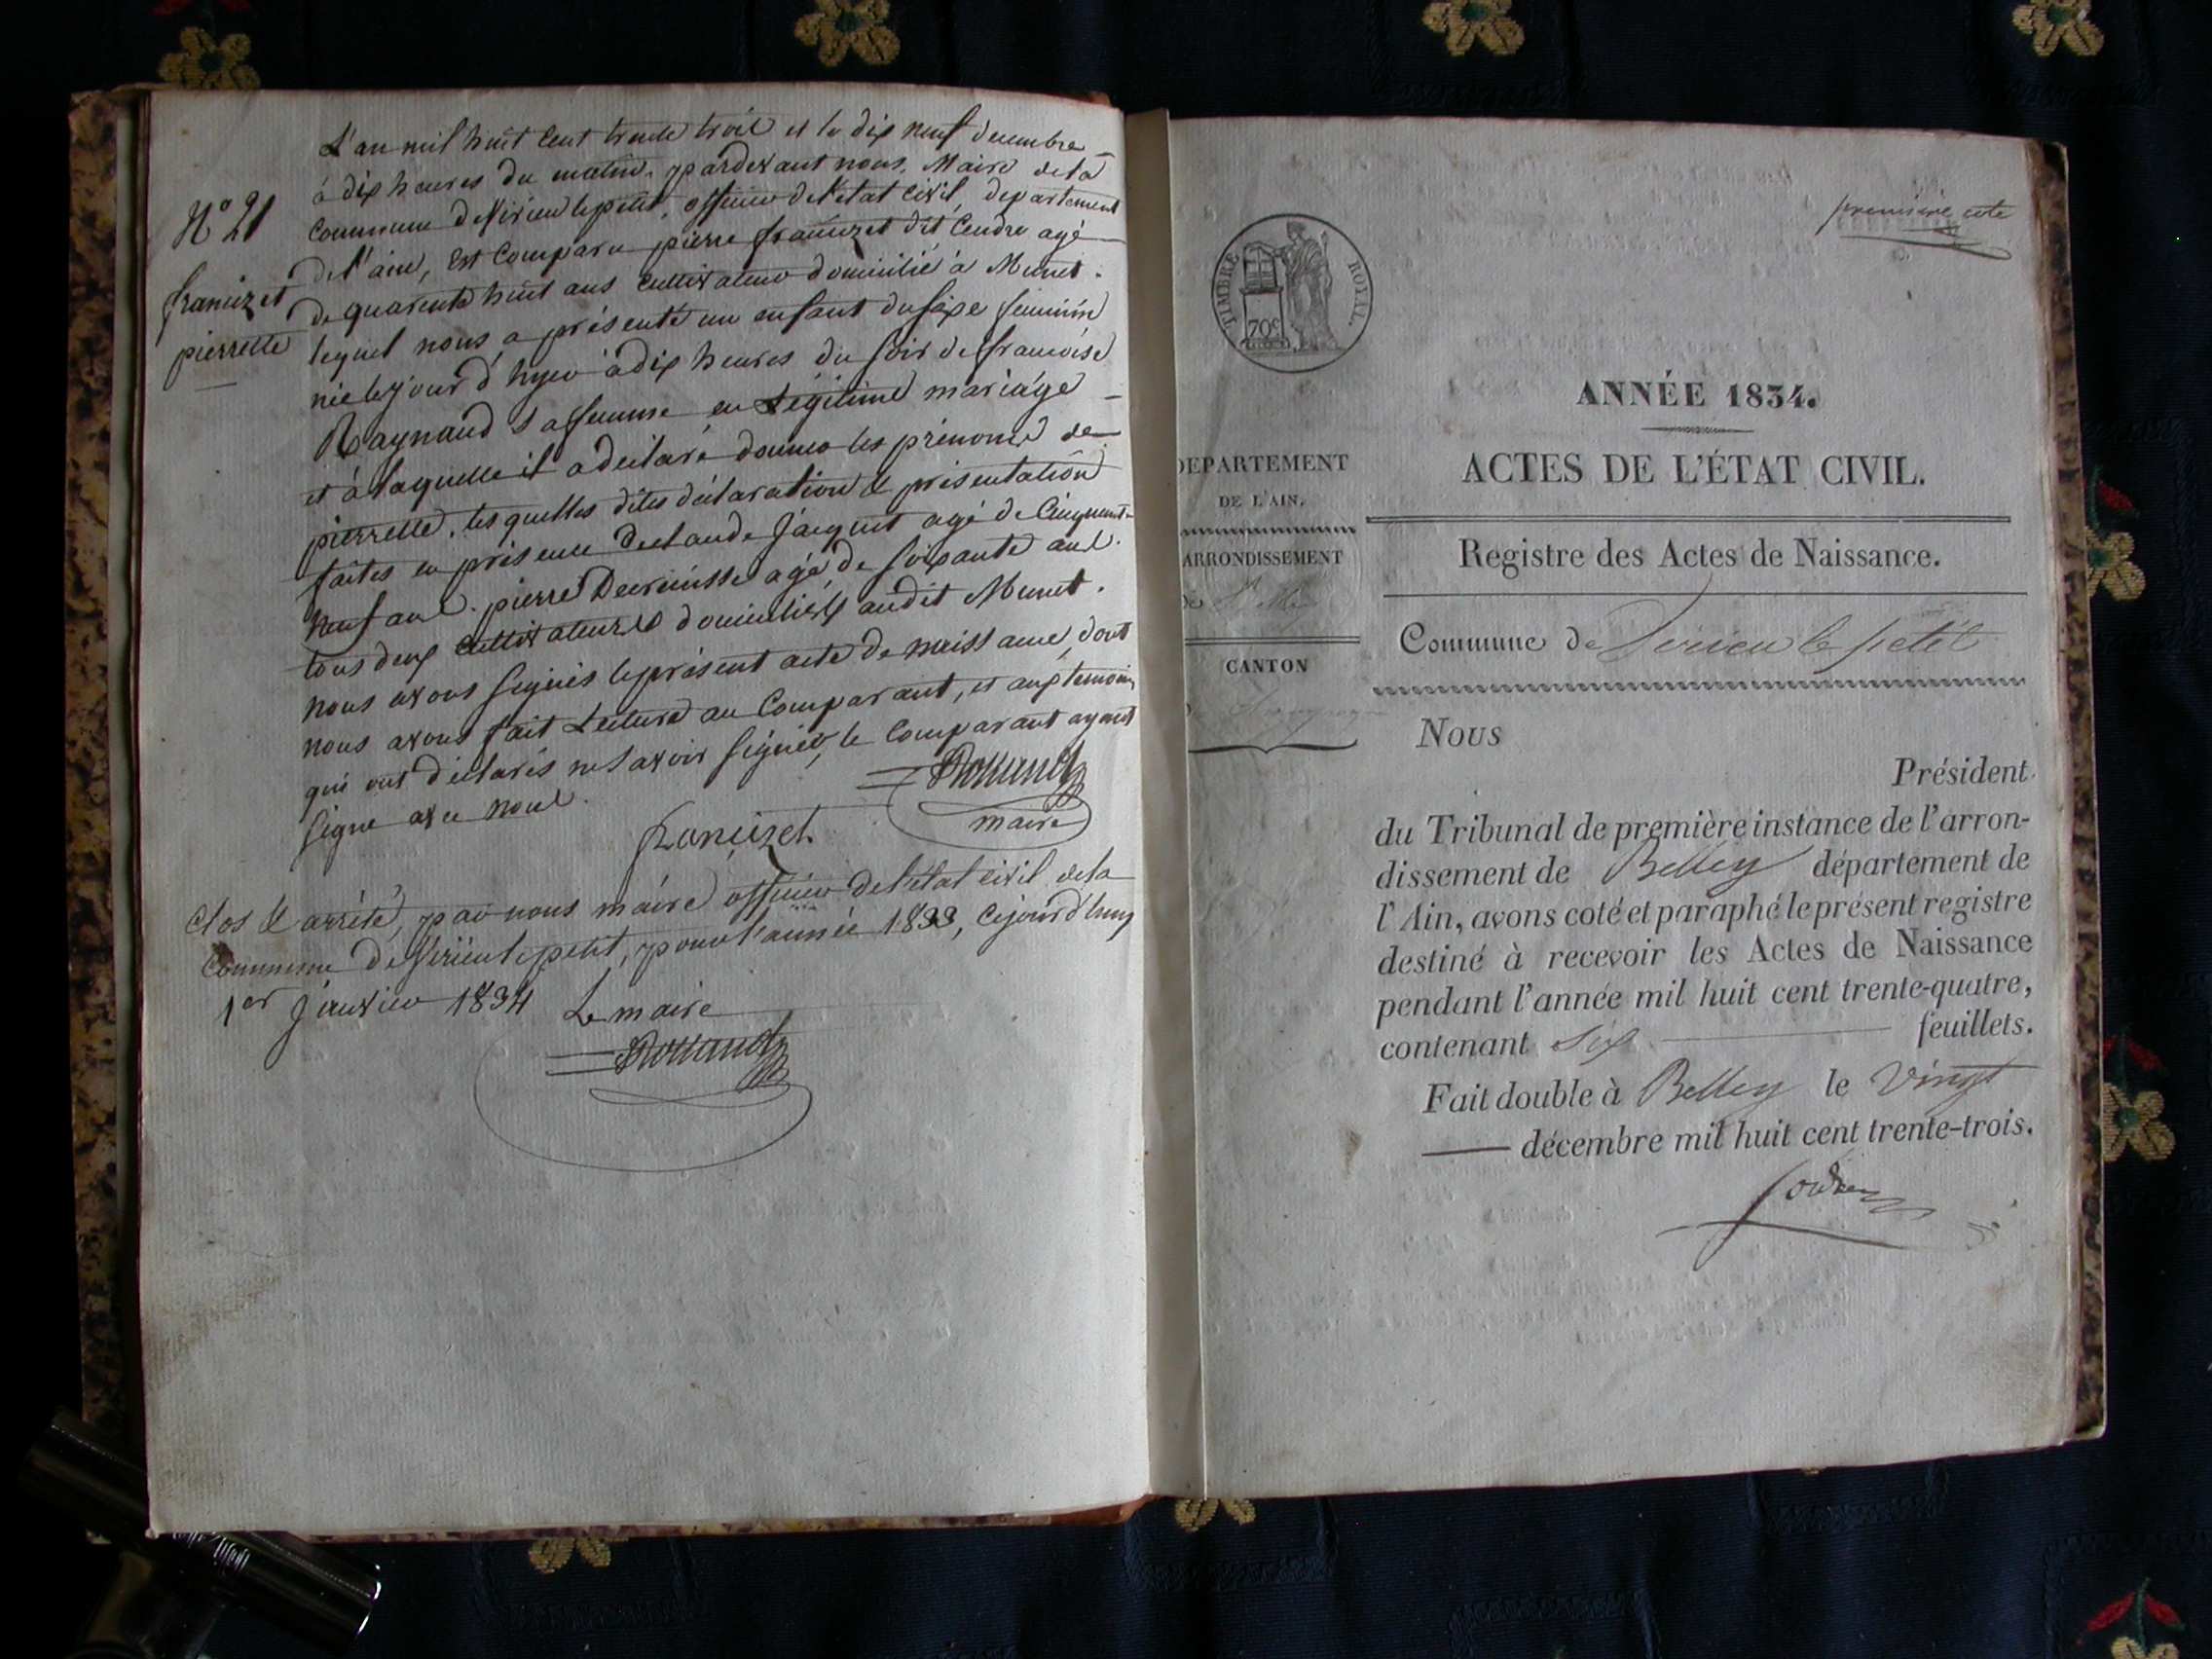 L'an mil huit cent trente trois et le dix neuf decembre
à dix heures du matin, pardevant nous, Maire de la
commune de Virieu le petit, officier de l'etat civil, departement
de l'ain, est comparu pierre francizet dit Cendre agé
de quarente huit ans cultivateur domicilié à Munet.
lequel nous a présenté un enfant du sexe féminin
née le jour d'hyer à dix heures du soir de francoise
Raynaud sa femme en Légitime mariage
et à laquelle il a déclaré donner les prénoms de
pierrette. les quelles dites déclaration & présentation
faites en présence de claude Jacquet agé de cinquante
neuf ans. pierre Decrœisse agé de soixante ans.
tous deux cultivateurs domiciliés audit Munet.
nous avons signés le présent acte de naissance, dont
nous avons fait Lecture au comparant, et aux temoins
qui ont déclarés ne savoir signer, le comparant ayant
signe avec nous.
N° 21
francizet
pierrette
Francizet
maire
Clos & arrêté, par nous maire officier de l'état civil de la
Commune de Virieu le petit, pour l'année 1833, cejourd'huy
1er janvier 1834 Le maire
première cote
TIMBRE ROYAL.
70c
ANNÉE 1834.
ACTES DE L'ÉTAT CIVIL.
DEPARTEMENT
DE L'AIN.
ARRONDISSEMENT
de
CANTON
Registre des Actes de Naissance.
Commune de Virieu le petit
Nous
Président
du Tribunal de première instance de l'arron-
dissement de Belley département de
l'Ain, avons coté et paraphé le présent registre
destiné à recevoir les Actes de Naissance
pendant l'année mil huit cent trente-quatre,
contenant Six feuillets.
Fait double à Belley le vingt
décembre mil huit cent trente-trois.